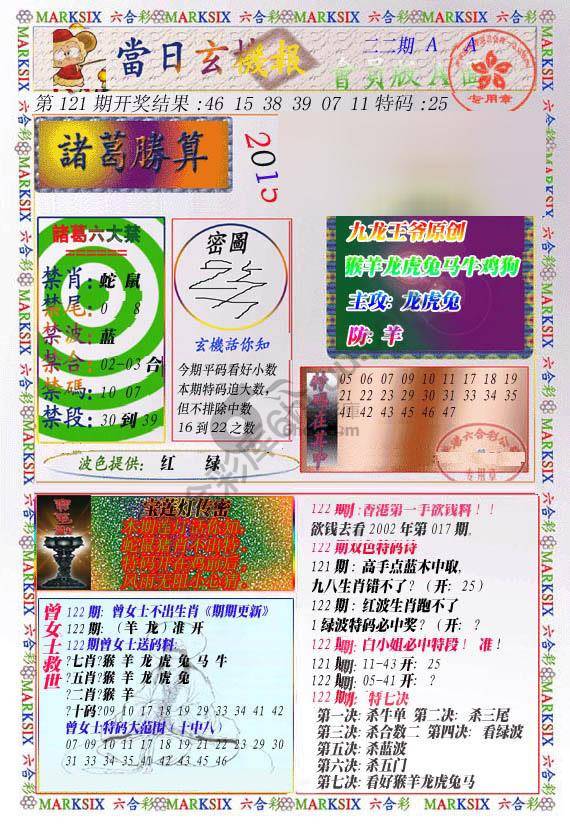 當日玄機报
二二期 A A
會員版A面
专用章
第121期开奖结果:46 15 38 39 07 11特码:25
諸葛勝算
2015
諸葛六大禁
======
禁肖:蛇 鼠
禁尾:0 8
禁波:蓝
禁合:02-03 合
禁碼:10 07
禁段:30到39
密圖
玄機活你知
今期平码看好小数
本期特码追大数,
但不排除中数
16到22之数
九龙王爷原创
猴羊龙虎兔马牛鸡狗
主攻: 龙虎兔
防: 羊
05 06 07 09 10 11 17 18 19
21 22 23 29 30 31 33 34 35
41 42 43 45 46 47
专用章
波色提供: 红 绿
宝莲灯传密
曾女士救世
122期: 曾女士不出生肖《期期更新》
122期: (羊 龙)准 开
122期曾女士送码料:
?七肖?猴 羊 龙 虎 兔 马 牛
?五肖?猴 羊 龙 虎 兔
?二肖?猴 羊
?十码?09 10 17 18 19 29 33 34 41 42
曾女士特码大范围﹝十中八﹞
07 09 10 11 17 18 19 21 22 23 29 30
31 33 34 35 41 42 43 45 46
122期:香港第一手欲钱料!!
欲钱去看2002年第017期,
122期双色特码诗
121期: 高手点蓝木中取,
九八生肖错不了?(开: 25)
122期: 红波生肖跑不了
1绿波特码必中奖?(开: ?
122期: 白小姐必中特段! 准!
121期: 11-43开: 25
122期: 05-41开: ?
122期: 特七决
第一决: 杀牛单 第二决: 杀三尾
第三决: 杀合数二 第四决: 看绿波
第五决: 杀蓝波
第六决: 杀五门
第七决: 看好猴羊龙虎兔马
MARKSIX 六合彩